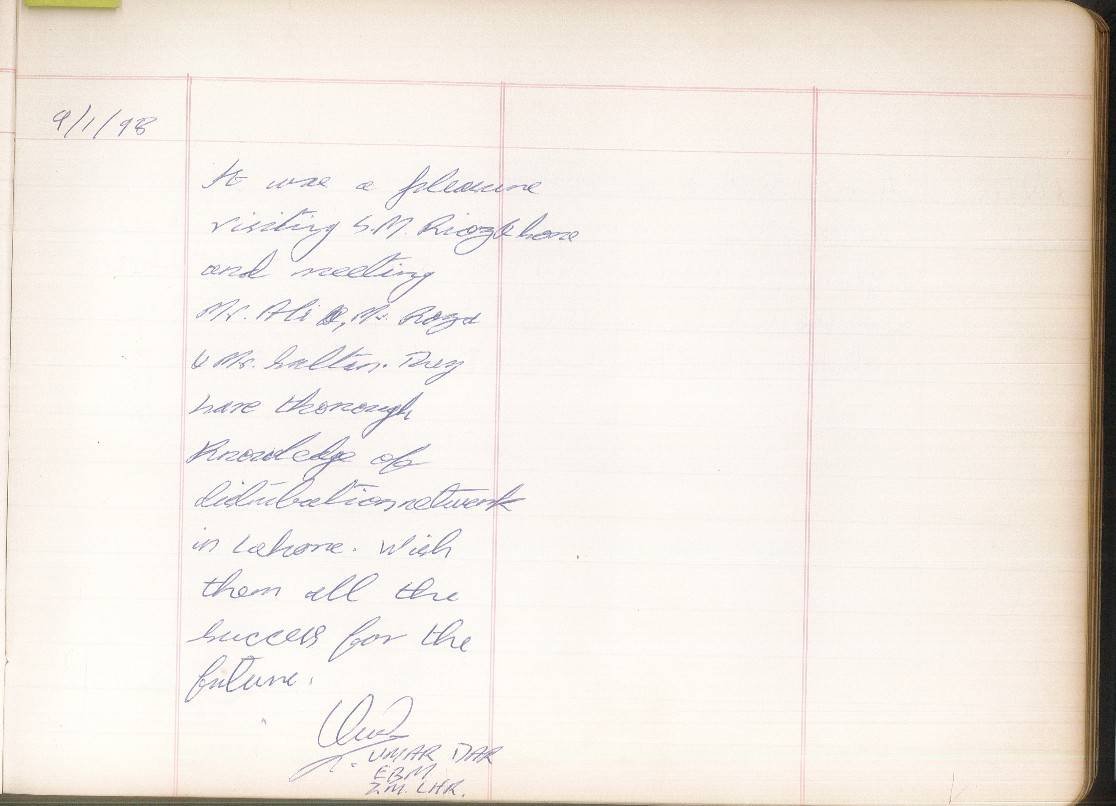 9/1/98
It was a pleasure
visiting S.M. Riaz Lahore
and meeting
Mr. Ali, Mr. Raza
& Mr. Sultan. They
have thorough
Knowledge of
distribution network
in Lahore. Wish
them all the
success for the
future.
UMAR DAR
EBM
Z.M. LHR.